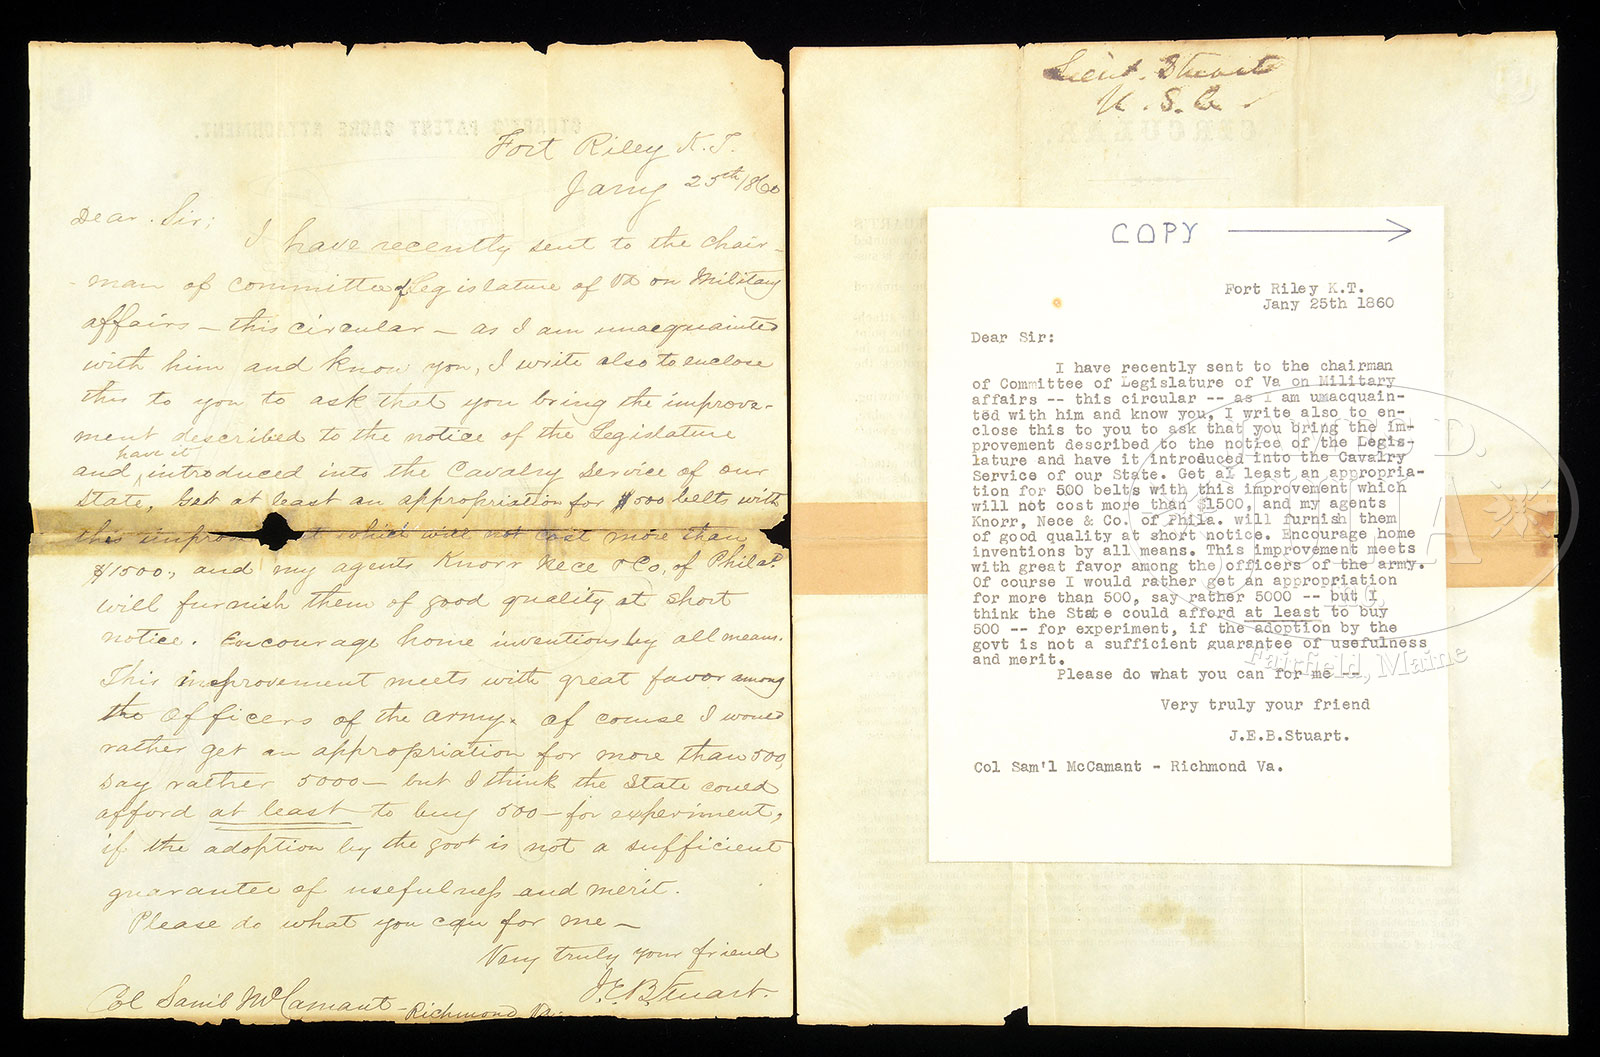 Fort Riley K.T.
Jany 25th 1860
Dear Sir;
I have recently sent to the chair-
man of committee of Legislature of Va on Military
affairs – this circular – as I am unacquainted
with him and know you, I write also to enclose
this to you to ask that you bring the improve-
ment described to the notice of the Legislature
have it
and introduced into the Cavalry Service of our
State, Get at least an appropriation for 500 belts with
this which will not cost more than
$1500., and my agents Knorr Nece & Co, of Philad.
will furnish them of good quality at short
notice. Encourage home inventions by all means.
This improvement meets with great favor among
the Officers of the army. Of course I would
rather get an appropriation for more than 500,
say rather 5000 – but I think the State could
afford at least to buy 500 – for experiment,
if the adoption by the govt is not a sufficient
guarantee of usefulness and merit.
Please do what you can for me –
Very truly your friend
J.E.B. Stuart.
Col Saml McCamant – Richmond Va.
Lieut. Stuart
U. S. A.
CIRCULAR
STUART'S PATENT SABRE ATTACHMENT.
COPY
Fort Riley K.T.
Jany 25th 1860
Dear Sir:
I have recently sent to the chairman
of Committee of Legislature of Va on Military
affairs -- this circular -- as I am umacquain-
ted with him and know you, I write also to en-
close this to you to ask that you bring the im-
provement described to the notice of the Legis-
lature and have it introduced into the Cavalry
Service of our State. Get al least an appropria-
tion for 500 belts with this improvement which
will not cost more than $1500, and my agents
Knorr, Nece & Co. of Phila. will furnish them
of good quality at short notice. Encourage home
inventions by all means. This improvement meets
with great favor among the officers of the army.
Of course I would rather get an appropriation
for more than 500, say rather 5000 -- but I
think the State could afford at least to buy
500 -- for experiment, if the adoption by the
govt is not a sufficient guarantee of usefulness
and merit.
Please do what you can for me --
Very truly your friend
J.E.B.Stuart.
Col Sam'l McCamant - Richmond Va.
Fairfield, Maine